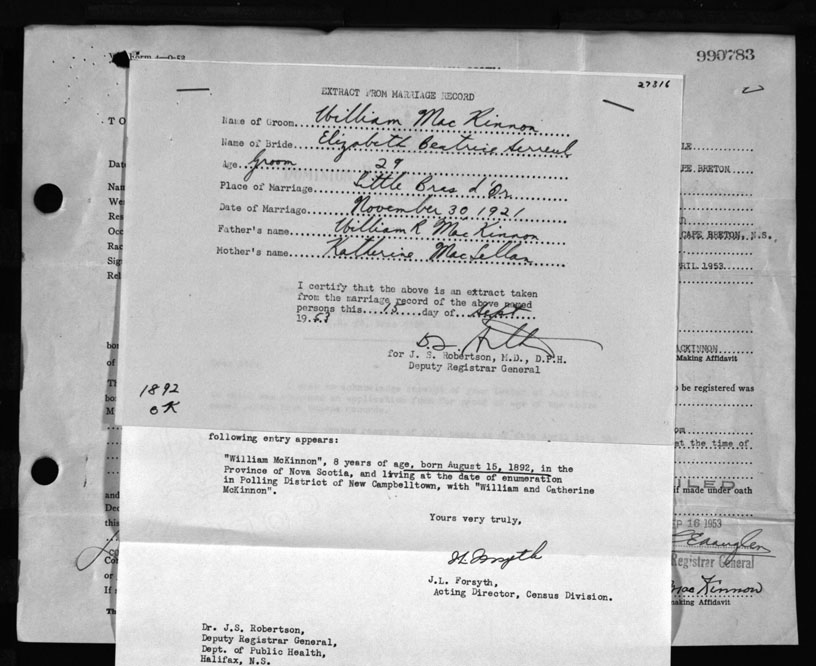 990783
27316
EXTRACT FROM MARRIAGE RECORD
Name of Groom....William MacKinnon
Name of Bride....Elizabeth Beatrice
Age....Groom 29
Place of Marriage....Little Bras d'Or
Date of Marriage....November 30, 1921
Father's name....William R MacKinnon
Mother's name....Katherine MacLellan
I certify that the above is an extract taken
from the marriage record of the above named
persons this....15....day of....Sept....
1953
for J. S. Robertson, M.D., D.P.H.
Deputy Registrar General
1892
OK
following entry appears:
"William McKinnon", 8 years of age, born August 15, 1892, in the
Province of Nova Scotia, and living at the date of enumeration
in Polling District of New Campbelltown, with "William and Catherine
McKinnon".
Yours very truly,
J.L. Forsyth
J.L. Forsyth,
Acting Director, Census Division.
Dr. J.S. Robertson,
Deputy Registrar General,
Dept. of Public Health,
Halifax, N.S.
T O
Dat
Nan
We
Res
Occ
Rac
Sig
Rel
bor
of
Th
bo
M
and
Dec
this
Co
or
If
Th
LE
PE BRETON
CAPE BRETON, N.S.
RIL 1953
ACKINNON
Making Affidavit
be registered was
at the time of
ILED
if made under oath
P 16 1953
Registrar General
MacKinnon
making Affidavit